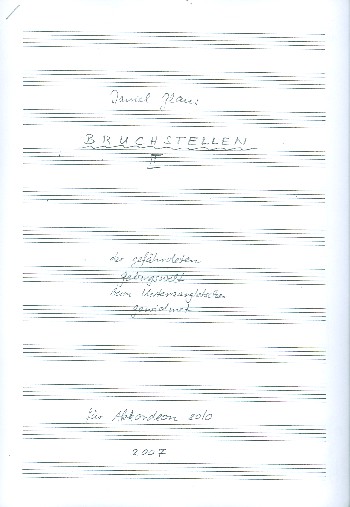 Daniel Glaus
BRUCHSTELLEN
II
der gefährdeten
Gebirgswelt
beim
gewidmet
für Akkordeon solo
2007